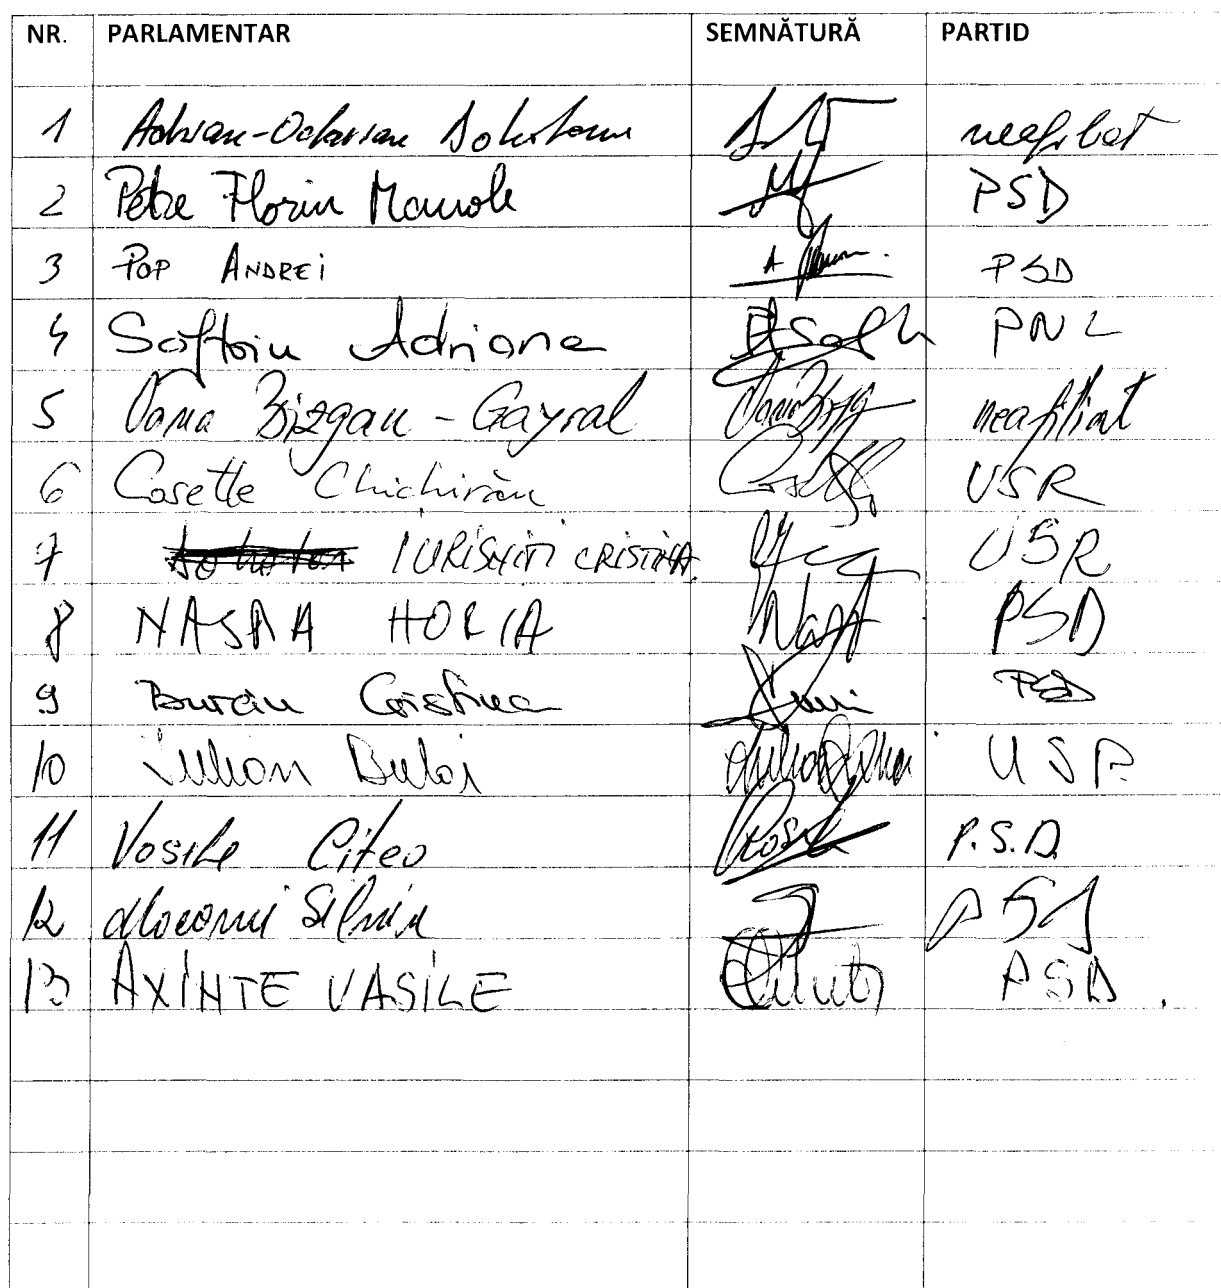 NR. PARLAMENTAR SEMNĂTURĂ PARTID
1 Adrian-Octavian Dohotaru neafiliat
2 Petre Florin Manole PSD
3 POP ANDREI PSD
4 Săftoiu Adriana PNL
5 Oana Bizgan-Gayral neafiliat
6 Cosette Chichirău USR
7 IURISNITI CRISTINA USR
8 NASRA HORIA PSD
9 Burciu Cristina PSD
10 Iulian Bulai USR
11 Vasile Cîtea P.S.D.
12 Macovei Silviu PSD
13 AXINTE VASILE PSD